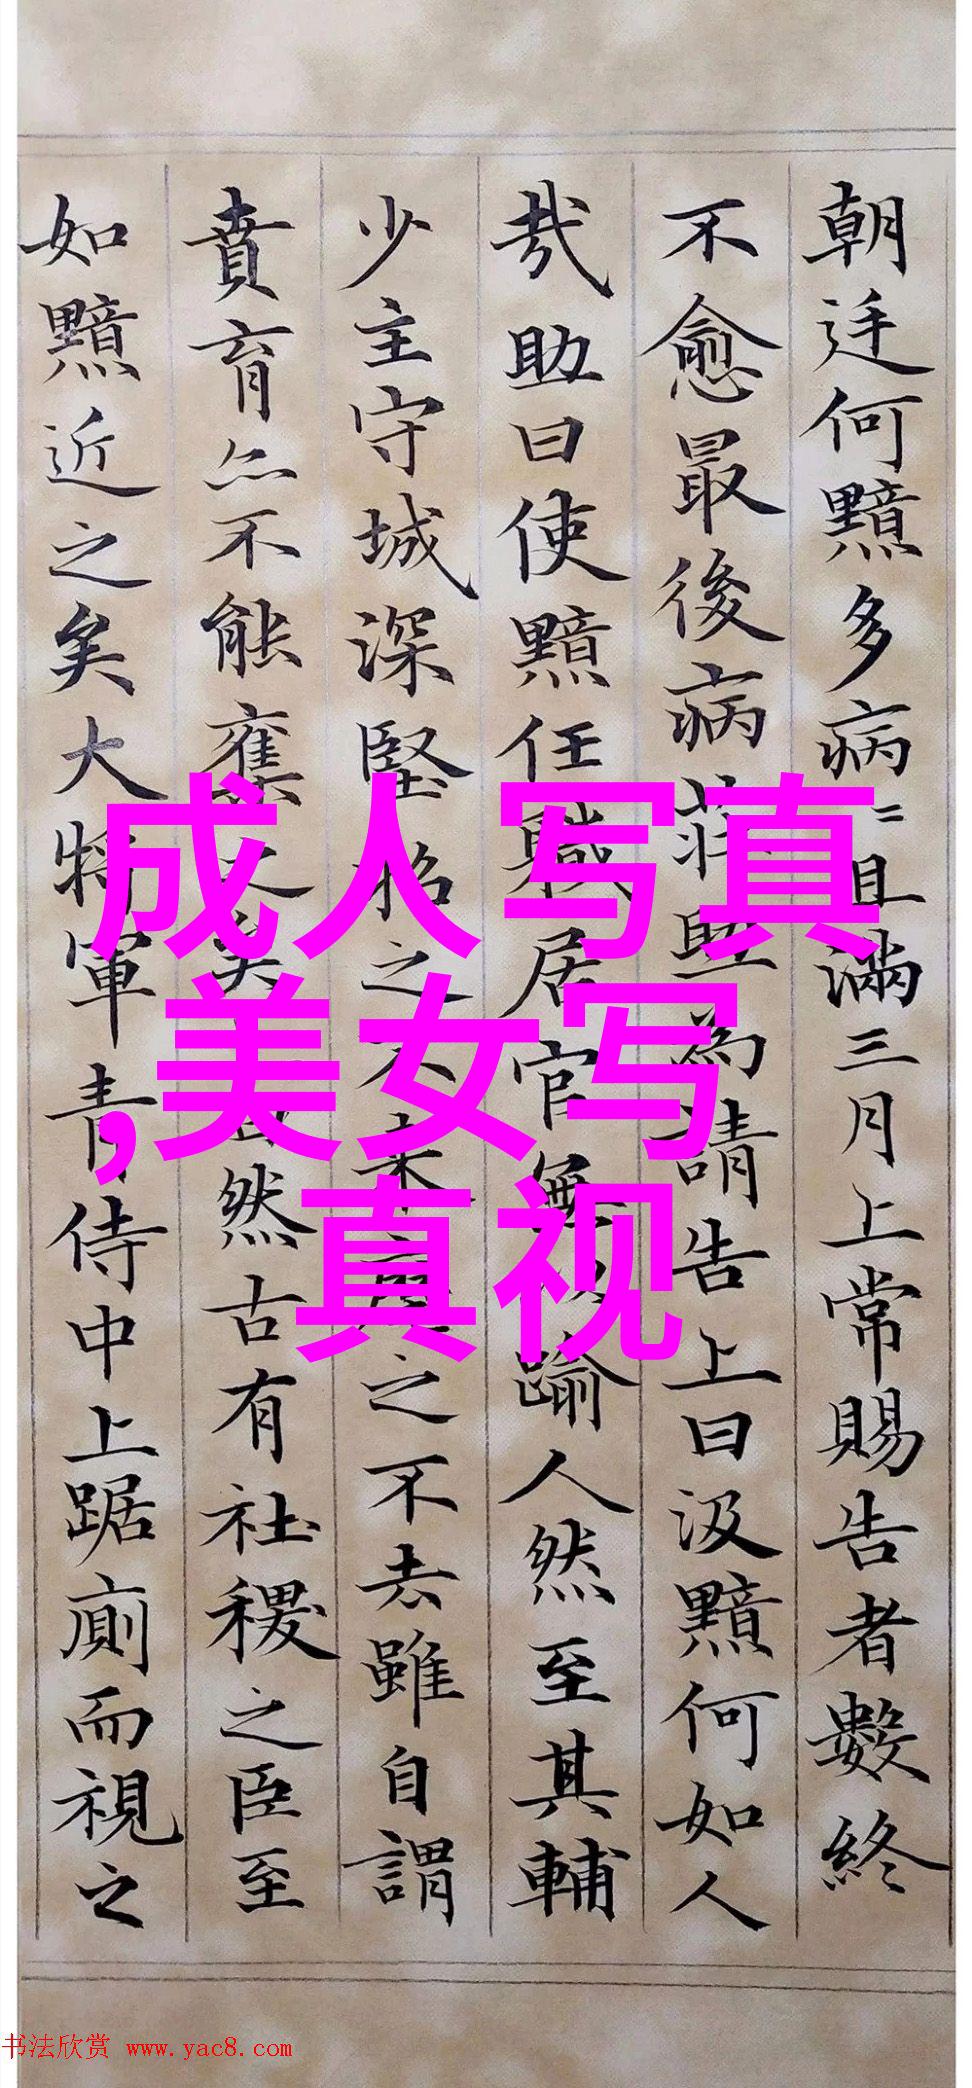 朝廷何黯多病〻且滿三月上常賜告者數終
不愈最後病莊助為請告上曰汲黯何如人
哉助曰使黯任職居官無以踰人然至其輔
少主守城深堅招之不来麾之不去雖自謂
賁育亦不能奪之矣上曰然古有社稷之臣至
如黯近之矣大將軍青侍中上踞廁而視之
成人写真
,美女写
真视
书法欣赏 www.yac8.com